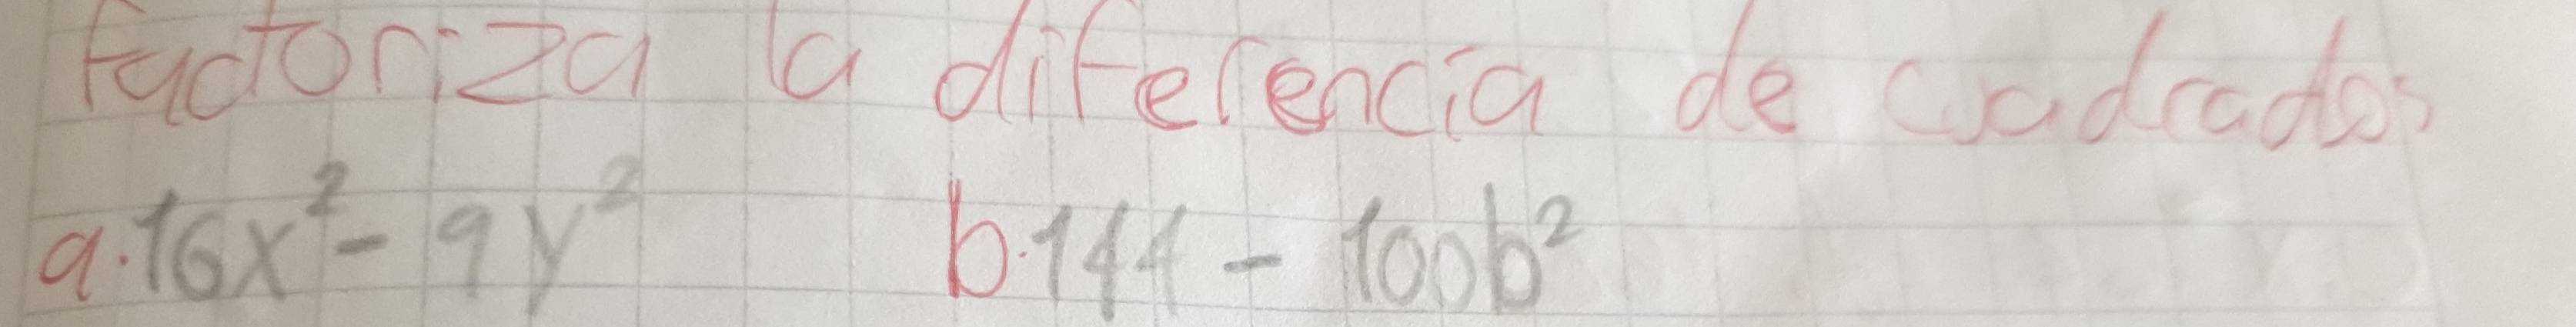 factoriza la diferencia de cuadrados
a. 16x² - 9y² b. 144 - 100b²